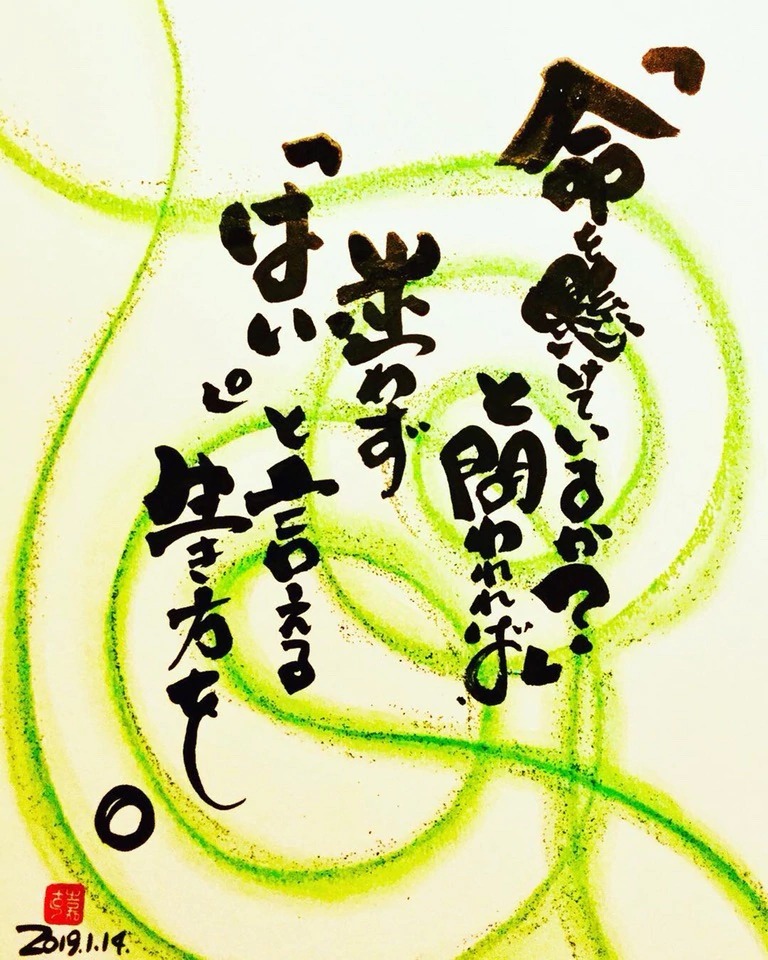 「命を懸けていますか?」
と問われれば
迷わず
「はい。」
と言える
生き方を
。
2019.1.14.